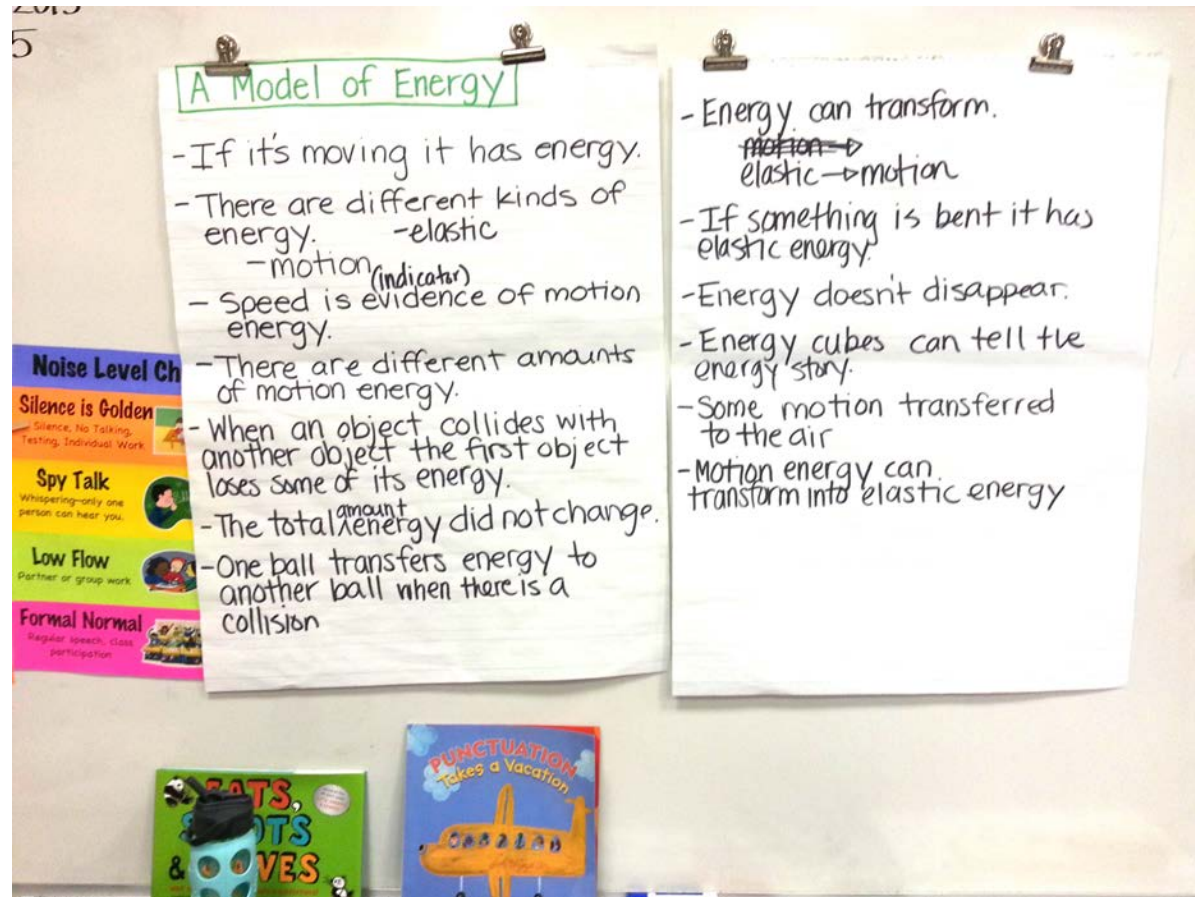 2015
5
A Model of Energy
- If it's moving it has energy.
- There are different kinds of
energy. -elastic
- motion
(indicator)
- Speed is evidence of motion
energy.
- There are different amounts
of motion energy.
- When an object collides with
another object the first object
loses some of its energy.
- The total amount energy did not change.
- One ball transfers energy to
another ball when there is a
collision
- Energy can transform.
motion→
elastic→motion
- If something is bent it has
elastic energy.
- Energy doesn't disappear.
- Energy cubes can tell the
energy story.
- Some motion transferred
to the air
- Motion energy can
transform into elastic energy
Noise Level Ch
Silence is Golden
Silence, No Talking,
Testing, Individual Work
Spy Talk
Whispering-only one
person can hear you.
Low Flow
Partner or group work
Formal Normal
Regular speech, class
participation
EATS,
& VES
PUNCTUATION
Takes a Vacation